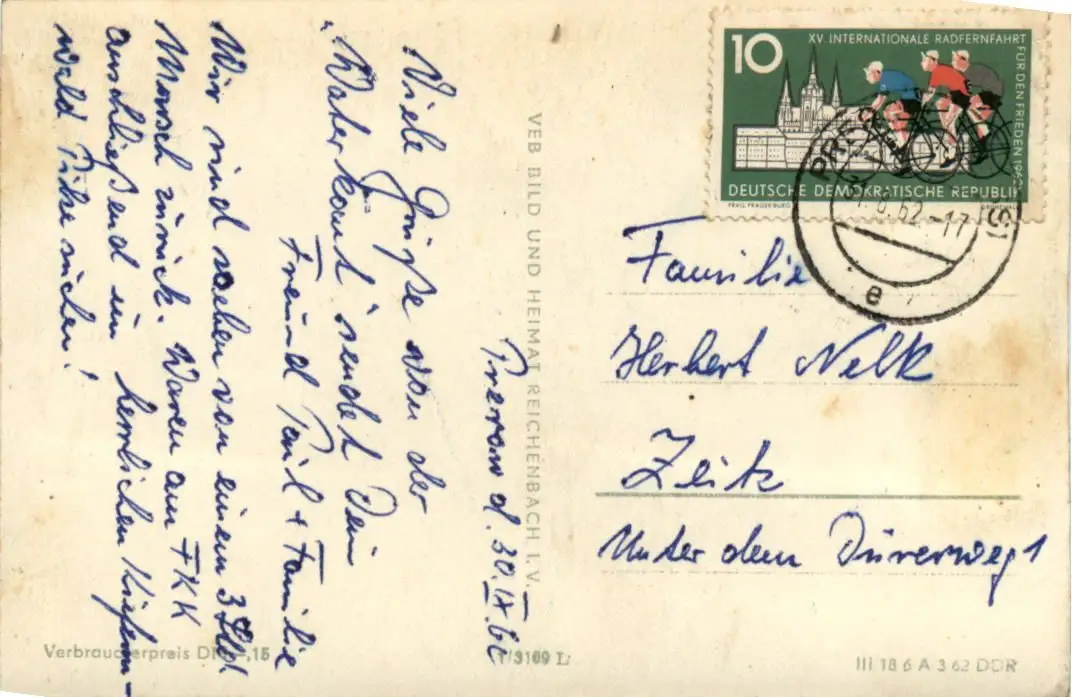 Prerow d. 30.IX.62
Viele Grüße von der
"Waterkant" sendet Dein
Freund Paul + Familie
Wir sind soeben von einem 3 Std
Marsch zurück. Waren am FKK
anschließend im herrlichen Kiefern-
wald Pilze suchen!
VEB BILD UND HEIMAT REICHENBACH I. V.
Verbraucherpreis DM -,15
1/3109 L
10
XV INTERNATIONALE RADFERNFAHRT
FÜR DEN FRIEDEN 1962
DEUTSCHE DEMOKRATISCHE REPUBLIK
PRAG, PRAGER BURG
62-17
e
Familie
Herbert Nelk
Zeitz
Unter dem Dürerweg 1
III 18 6 A 3 62 DDR